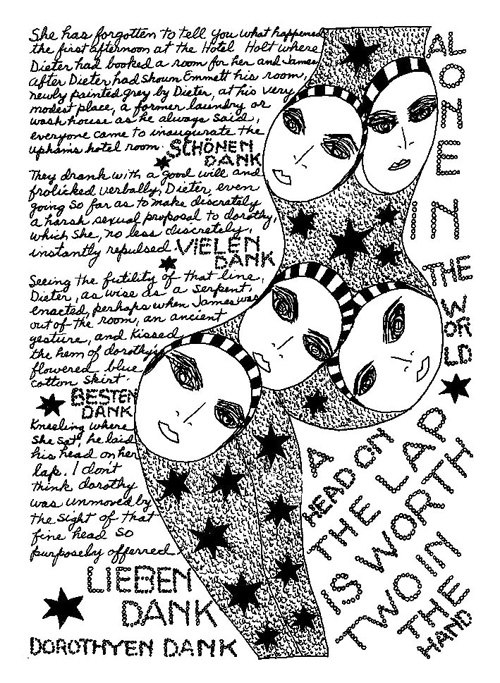 She has forgotten to tell you what happened
the first afternoon at the Hotel Holt where
Dieter had booked a room for her and James
After Dieter had shown Emmett his room,
newly painted grey by Dieter, at his very
modest place, a former laundry or
wash house as he always said,
everyone came to inaugurate the
Uphams hotel room.
SCHÖNEN
DANK
They drank with a good will and
frolicked verbally, Dieter even
going so far as to make discretely
a harsh sexual proposal to dorothy,
which she, no less discretely,
instantly repulsed
VIELEN
DANK
Seeing the futility of that line,
Dieter, as wise as a serpent,
enacted, perhaps when James was
out of the room, an ancient
gesture, and kissed
the hem of dorothy's
flowered blue
cotton skirt.
BESTEN
DANK
Kneeling where
she sat, he laid
his head on her
lap. I don't
think dorothy
was unmoved by
the sight of that
fine head so
purposely offered.
LIEBEN
DANK
DOROTHYEN DANK
ALONE
IN
THE
WORLD
A
HEAD ON
THE LAP
IS WORTH
TWO IN
THE
HAND